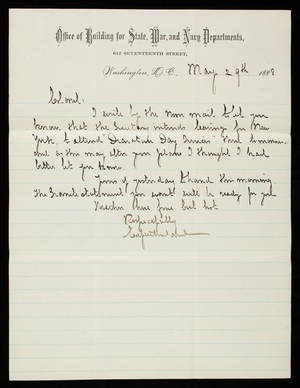 Office of Building for State, War, and Navy Departments,
612 SEVENTEENTH STREET,
Washington, D.C., May 29th 1888
Colonel:
I write by the noon mail to let you
know that the Secretary intends leaving for New
York, to attend Decoration Day services there tomorrow
and as this may alter your plans I thought I had
better let you know.
Yours of yesterday to hand this morning
The statement you want will be ready for you
Weather here fine but hot
Respectfully